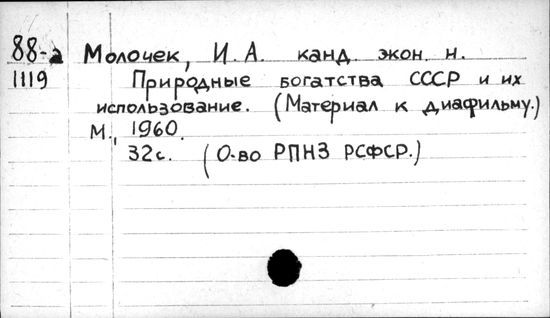 88-а Молочек, И. А. канд. экон. н.
1119 Природные богатства СССР и их
использование. (Материал к диафильму.)
М., 1960.
32с. (О-во РПНЗ РСФСР.)